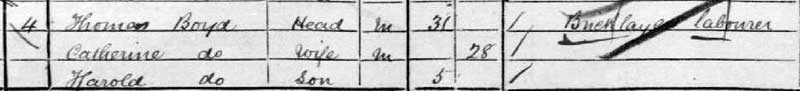 4 Thomas Boyd Head M 31 1 Bricklayer labourer
Catherine do Wife M 28 1
Harold do Son 5 1